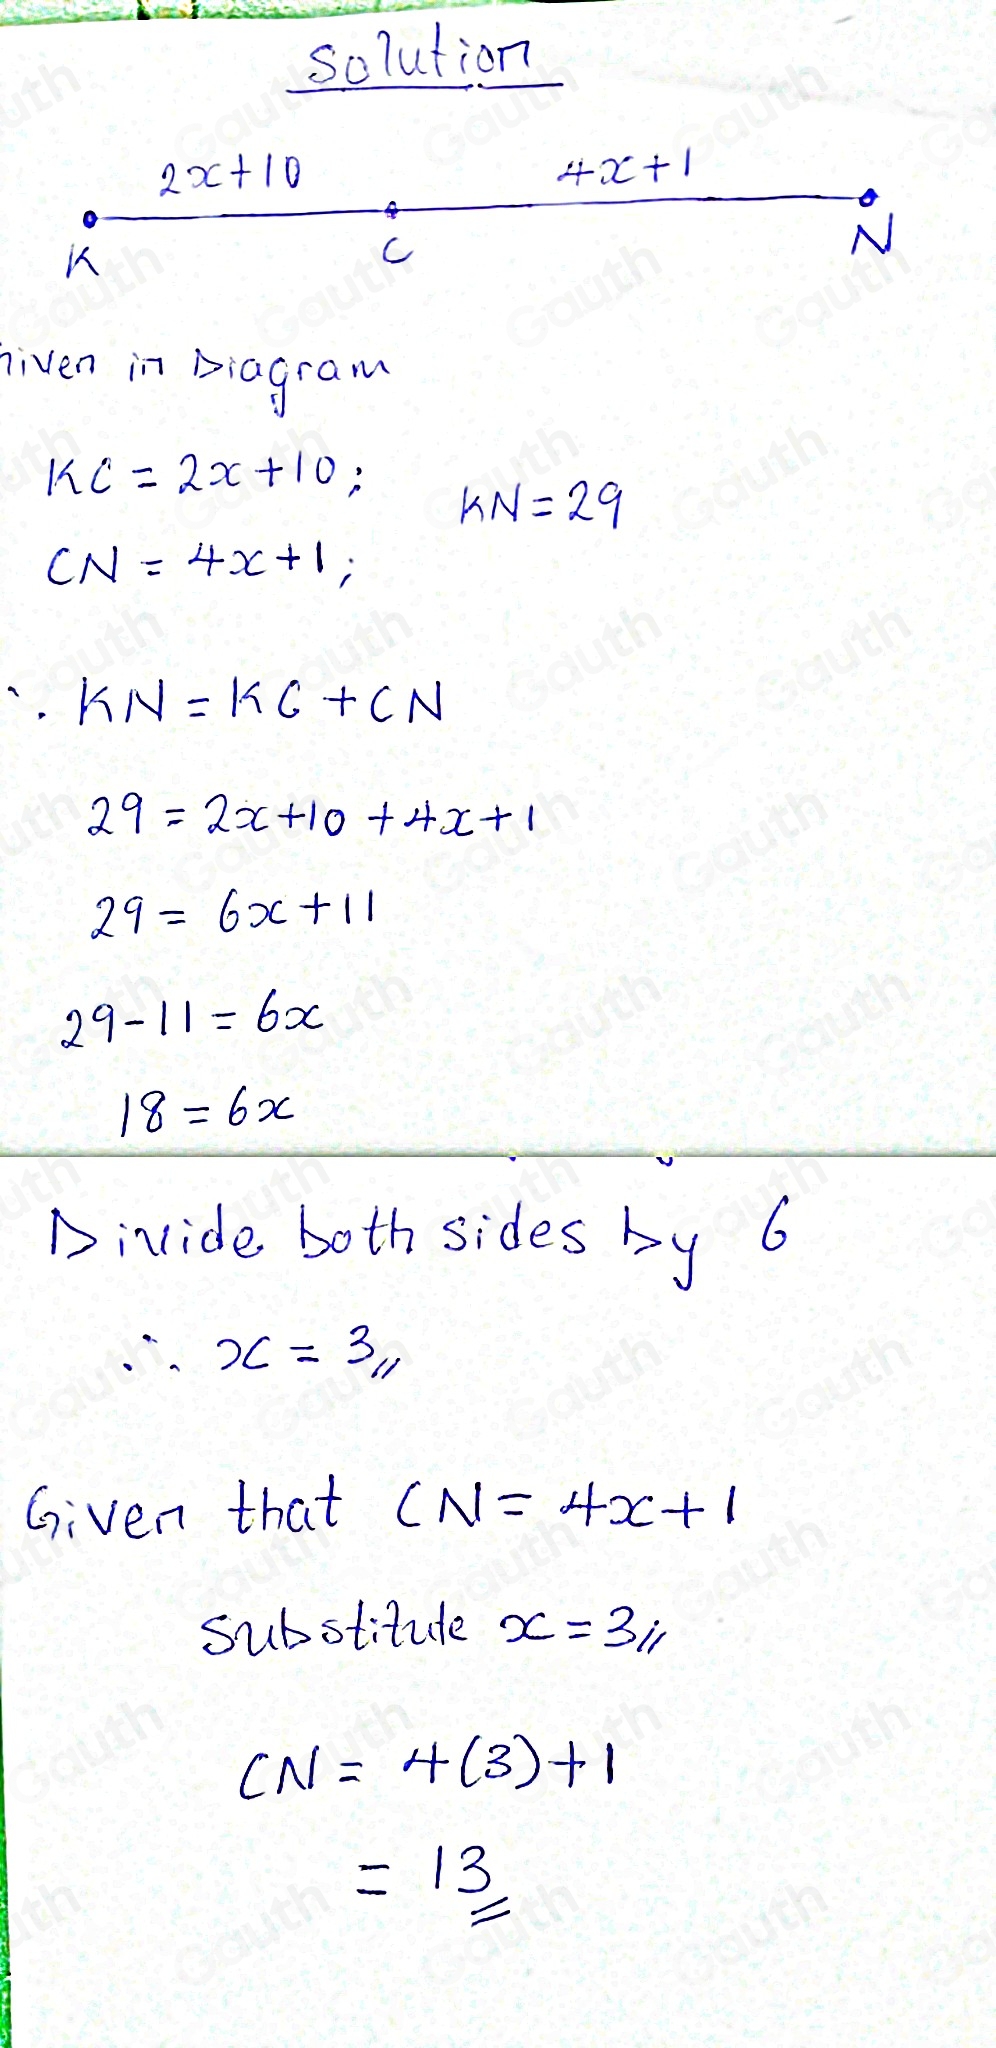 Solution
2x+10 4x+1
K C N
Given in Diagram
KC = 2x+10;
KN = 29
CN = 4x+1;
∴ KN = KC + CN
29 = 2x+10 + 4x+1
29 = 6x+11
29-11 = 6x
18 = 6x
Divide both sides by 6
∴ x = 3,,
Given that CN = 4x+1
substitute x = 3,,
CN = 4(3)+1
= 13
Gauth